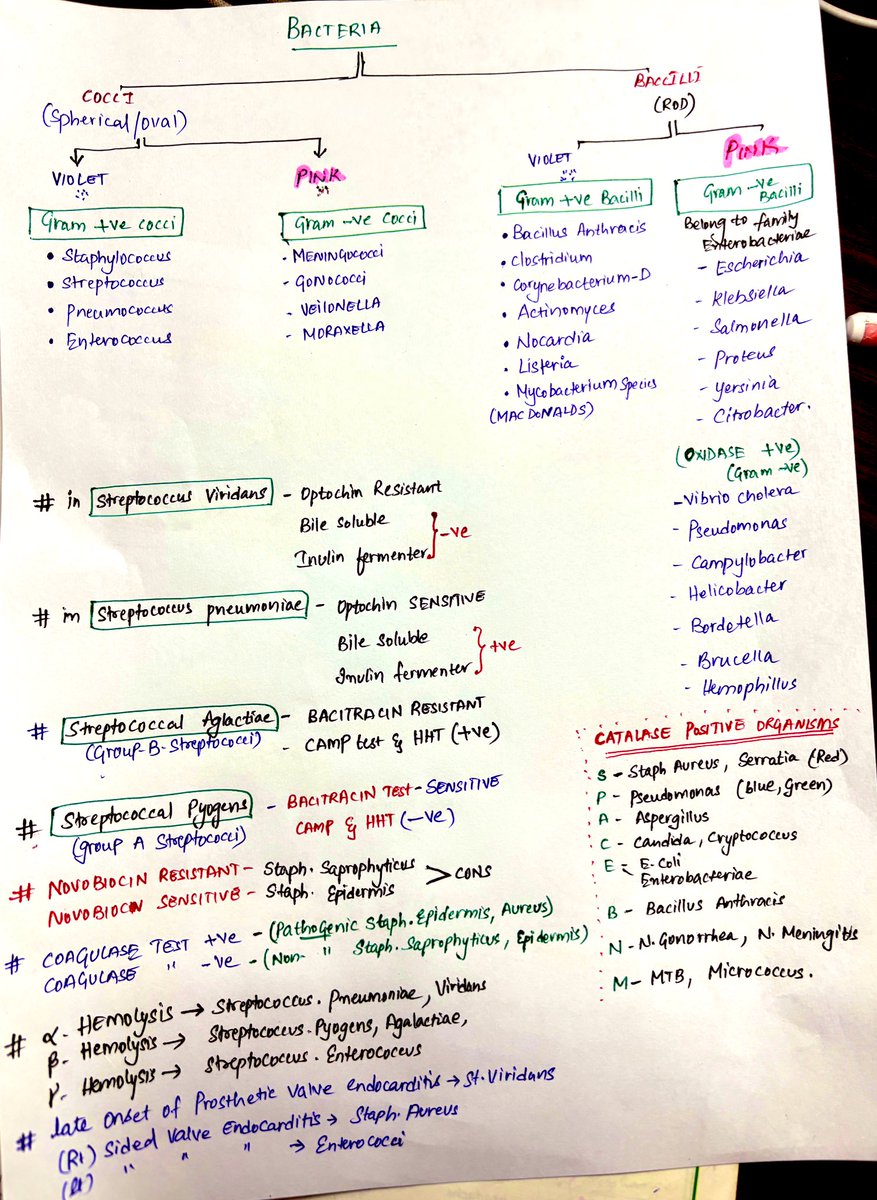 BACTERIA
COCCI
(Spherical/oval)
VIOLET
Gram +ve cocci
• Staphylococcus
• Streptococcus
• Pneumococcus
• Enterococcus
PINK
Gram -ve Cocci
- MENINGOCOCCI
- GONOCOCCI
- VEILONELLA
- MORAXELLA
BACCILLI
(ROD)
VIOLET
Gram +ve Bacilli
• Bacillus Anthracis
• Clostridium
• Corynebacterium-D
• Actinomyces
• Nocardia
• Listeria
• Mycobacterium Species
(MACDONALDS)
PINK
Gram -ve Bacilli
Belong to family
Enterobacteriae
- Escherichia
- Klebsiella
- Salmonella
- Proteus
- Yersinia
- Citrobacter.
(OXIDASE +ve)
(Gram -ve)
- Vibrio cholera
- Pseudomonas
- Campylobacter
- Helicobacter
- Bordetella
- Brucella
- Hemophillus
# in Streptococcus Viridans - Optochin Resistant
Bile soluble
Inulin fermenter } -ve
# in Streptococcus pneumoniae - Optochin SENSITIVE
Bile soluble
Inulin fermenter } +ve
# Streptococcal Aglactiae - BACITRACIN RESISTANT
(Group-B-Streptococci) - CAMP test & HHT (+ve)
# Streptococcal Pyogens - BACITRACIN TEST - SENSITIVE
(group A Streptococci) CAMP & HHT (-ve)
# NOVOBIOCIN RESISTANT - Staph. Saprophyticus
NOVOBIOCIN SENSITIVE - Staph. Epidermis > CONS
# COAGULASE TEST +ve - (Pathogenic Staph. Epidermis, Aureus)
COAGULASE " -ve - (Non- " Staph. Saprophyticus, Epidermis)
# α- HEMOLYSIS → Streptococcus. Pneumoniae, Viridans
β- Hemolysis → Streptococcus. Pyogens, Agalactiae,
γ- Hemolysis → Streptococcus. Enterococcus
# late Onset of Prosthetic Valve endocarditis → St. Viridans
(Rt) Sided Valve Endocarditis → Staph. Aureus
(lt) " " " → Enterococci
CATALASE POSITIVE ORGANISMS
S - Staph Aureus, Serratia (Red)
P - Pseudomonas (blue, Green)
A - Aspergillus
C - Candida, Cryptococcus
E - E. Coli
Enterobacteriae
B - Bacillus Anthracis
N - N. Gonorrhea, N. Meningitis
M - MTB, Micrococcus.